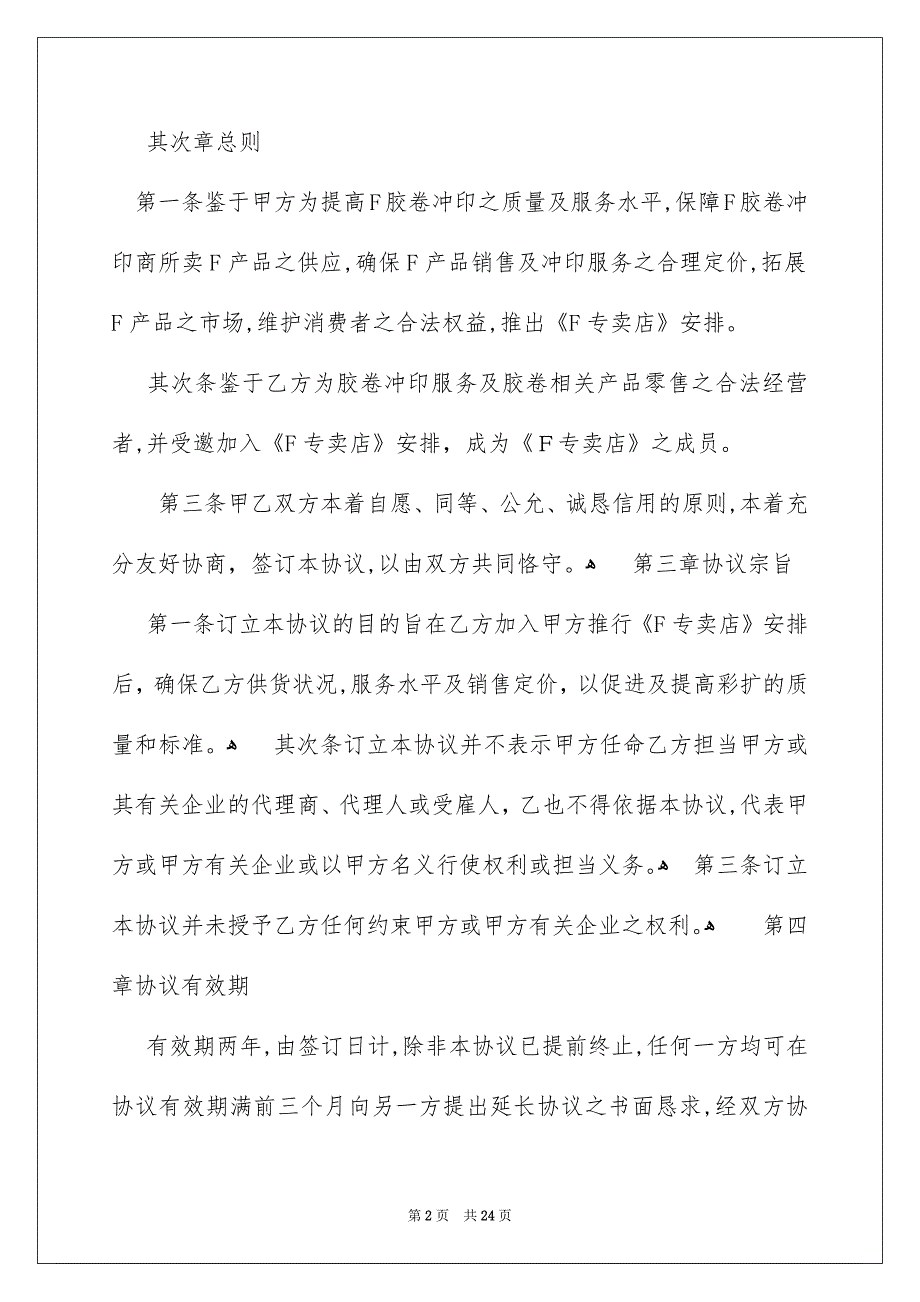 其次章总则
第一条鉴于甲方为提高F胶卷冲印之质量及服务水平,保障F胶卷冲
印商所卖F产品之供应,确保F产品销售及冲印服务之合理定价,拓展
F产品之市场,维护消费者之合法权益,推出《F专卖店》安排。
其次条鉴于乙方为胶卷冲印服务及胶卷相关产品零售之合法经营
者,并受邀加入《F专卖店》安排，成为《F专卖店》之成员。
第三条甲乙双方本着自愿、同等、公允、诚恳信用的原则,本着充
分友好协商，签订本协议,以由双方共同恪守。ﻫ 第三章协议宗旨
第一条订立本协议的目的旨在乙方加入甲方推行《F专卖店》安排
后，确保乙方供货状况,服务水平及销售定价，以促进及提高彩扩的质
量和标准。ﻫ 其次条订立本协议并不表示甲方任命乙方担当甲方或
其有关企业的代理商、代理人或受雇人，乙也不得依据本协议,代表甲
方或甲方有关企业或以甲方名义行使权利或担当义务。ﻫ 第三条订立
本协议并未授予乙方任何约束甲方或甲方有关企业之权利。ﻫ 第四
章协议有效期
有效期两年,由签订日计,除非本协议已提前终止,任何一方均可在
协议有效期满前三个月向另一方提出延长协议之书面恳求,经双方协
第2页 共24页